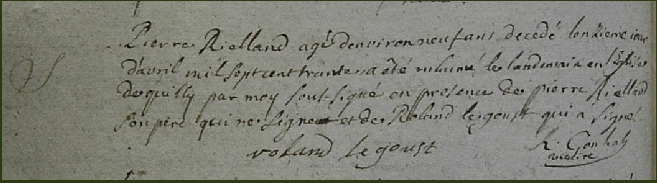 Pierre Rielland agé denviron neuf ans decedé lonzieme jour
d'avril mil sept cent trente a été inhumé le landemain en l'Eglise
de quilly par moy soussigné en presence de pierre Rielland
son pere qui ne signe et de Roland le goust qui a signe
roland le goust
vicaire